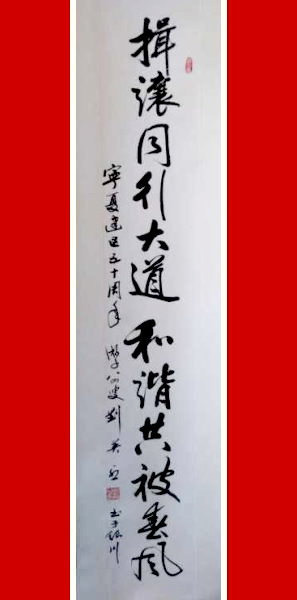 揖讓同行大道和諧共被春風
寧夏建區五十周年 劉 书于銀川